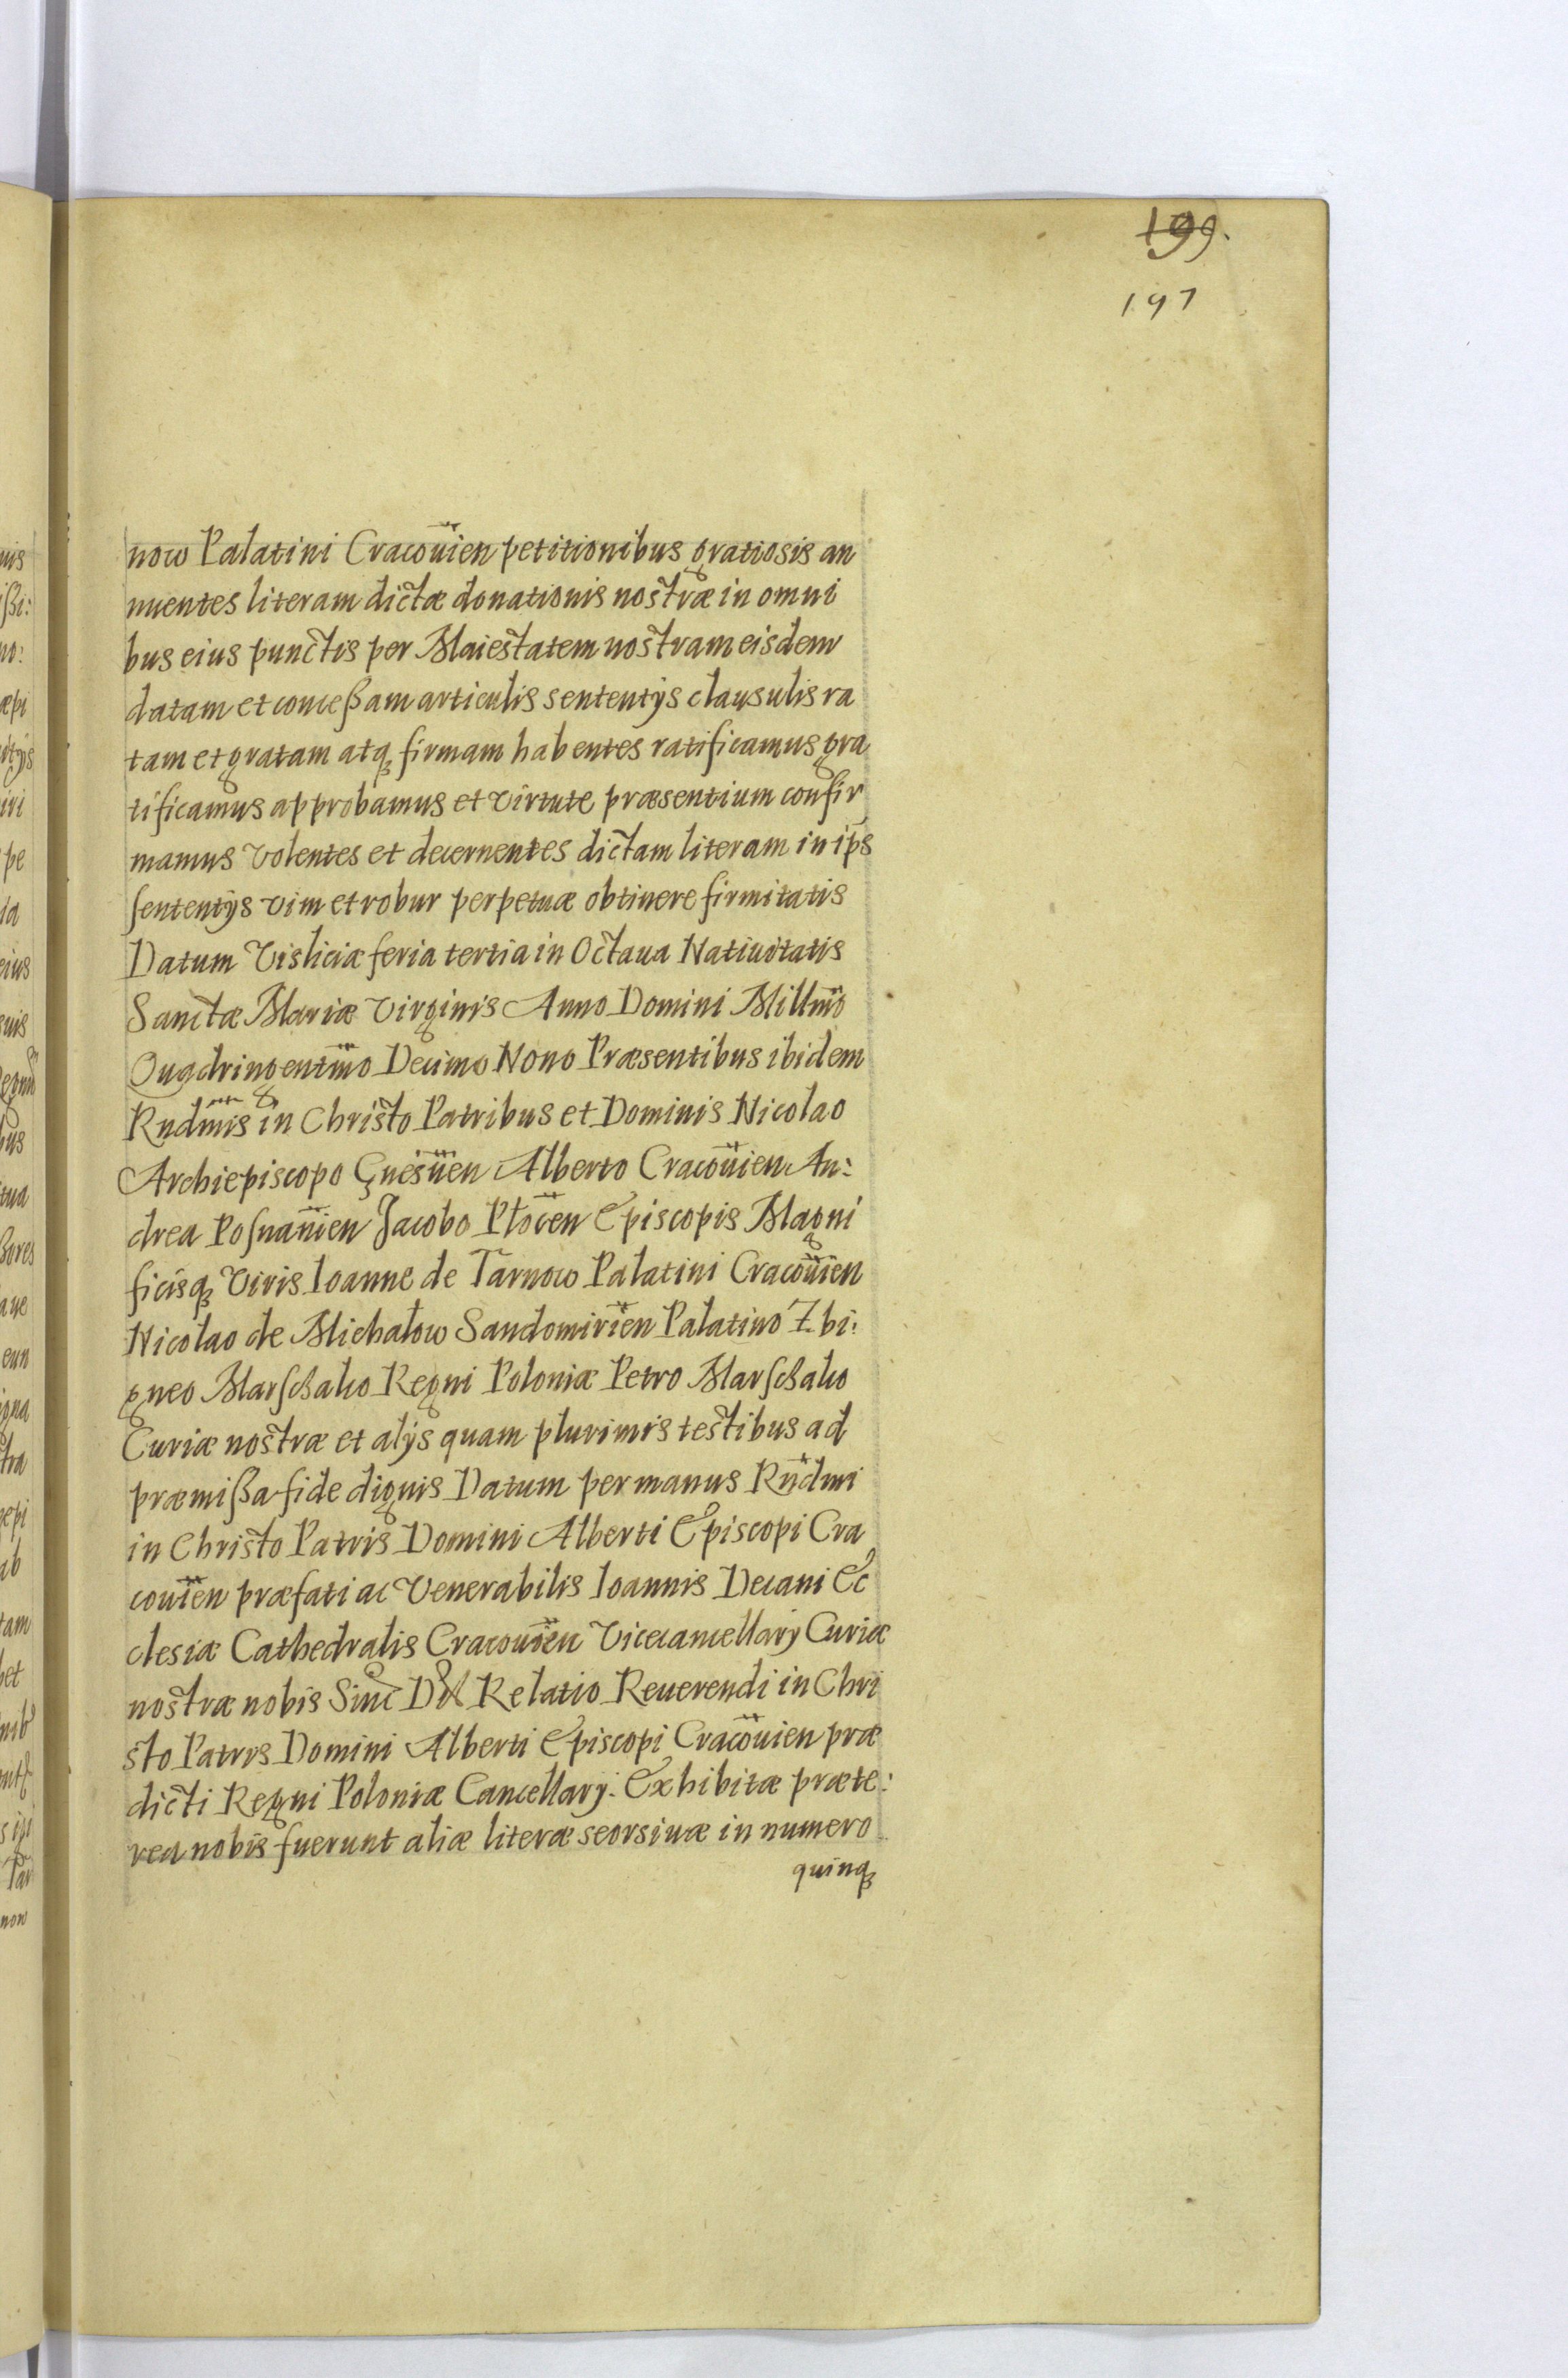 199.
197
now Palatini Cracouien petitionibus gratiosis an
nuentes literam dictæ donationis nostræ in omni
bus eius punctis per Maiestatem nostram eisdem
datam et conceßam articulis sententÿs clausulis ra
tam et gratam atq firmam habentes ratificamus gra
tificamus approbamus et virtute præsentium confir
mamus volentes et decernentes dictam literam in ips
sententÿs vim et robur perpetuæ obtinere firmitatis
Datum Visliciæ feria tertia in Octaua Natiuitatis
Sanctæ Mariæ Virginis Anno Domini Millmo
Quadringentmo Decimo Nono Præsentibus ibidem
Rndmis in Christo Patribus et Dominis Nicolao
Archiepiscopo Gnesnen Alberto Cracouien An:
drea Posnanien Jacobo Plocen Episcopis Magni
ficisq Viris Ioanne de Tarnow Palatini Cracouien
Nicolao de Michałow Sandomirien Palatino Zbi:
gneo Marschalco Regni Poloniæ Petro Marschalco
Curiæ nostræ et alÿs quam plurimis testibus ad
præmißa fide dignis Datum per manus Rndmi
in Christo Patris Domini Alberti Episcopi Cra
couien præfati ac Venerabilis Ioannis Decani Ec
clesiæ Cathedralis Cracouien Vicecancellarÿ Curiæ
nostræ nobis Sinc Dil Relatio Reuerendi in Chri
sto Patris Domini Alberti Episcopi Cracouien præ
dicti Regni Poloniæ Cancellarÿ. Exhibitæ præte:
rea nobis fuerunt aliæ literæ seorsiuæ in numero
quinq